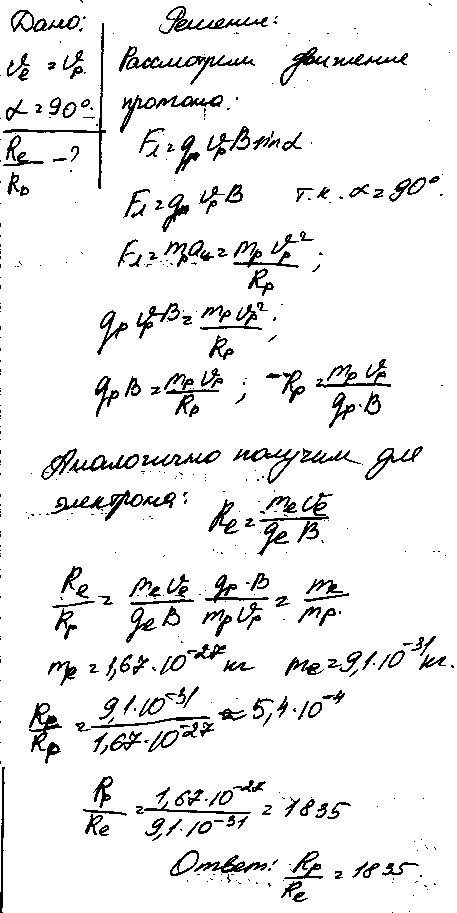 Дано:
Решение:
υe = υp
α = 90°.
Re/Rp - ?
Рассмотрим движение
протона:
Fл = qp υp B sinα.
Fл = qp υp B т.к. α = 90°.
Fл = mp aц = mp υp²/Rp ;
qp υp B = mp υp²/Rp ;
qp B = mp υp/Rp ; Rp = mp υp/qp·B
Аналогично получим для
электрона: Re = me υe/qe B.
Re/Rp = me υe/qe B · qp·B/mp υp = me/mp.
mp = 1,67·10⁻²⁷ кг me = 9,1·10⁻³¹ кг.
Re/Rp = 9,1·10⁻³¹/1,67·10⁻²⁷ ≈ 5,4·10⁻⁴
Rp/Re = 1,67·10⁻²⁷/9,1·10⁻³¹ = 1835
Ответ: Rp/Re = 1835.